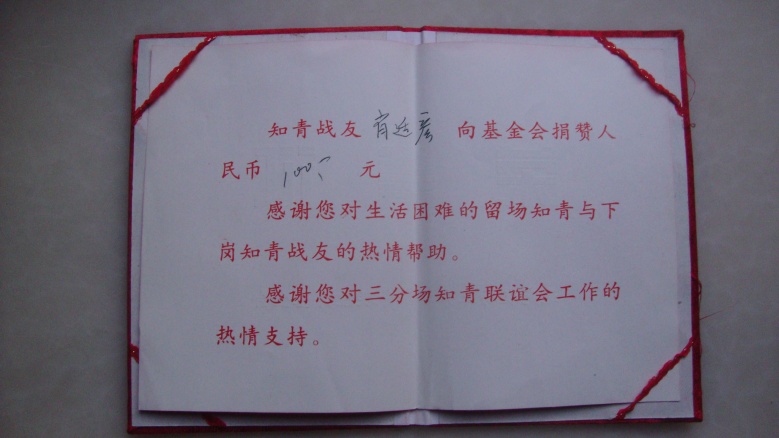 知青战友 向基金会捐赞人
民币 元
感谢您对生活困难的留场知青与下
岗知青战友的热情帮助。
感谢您对三分场知青联谊会工作的
热情支持。